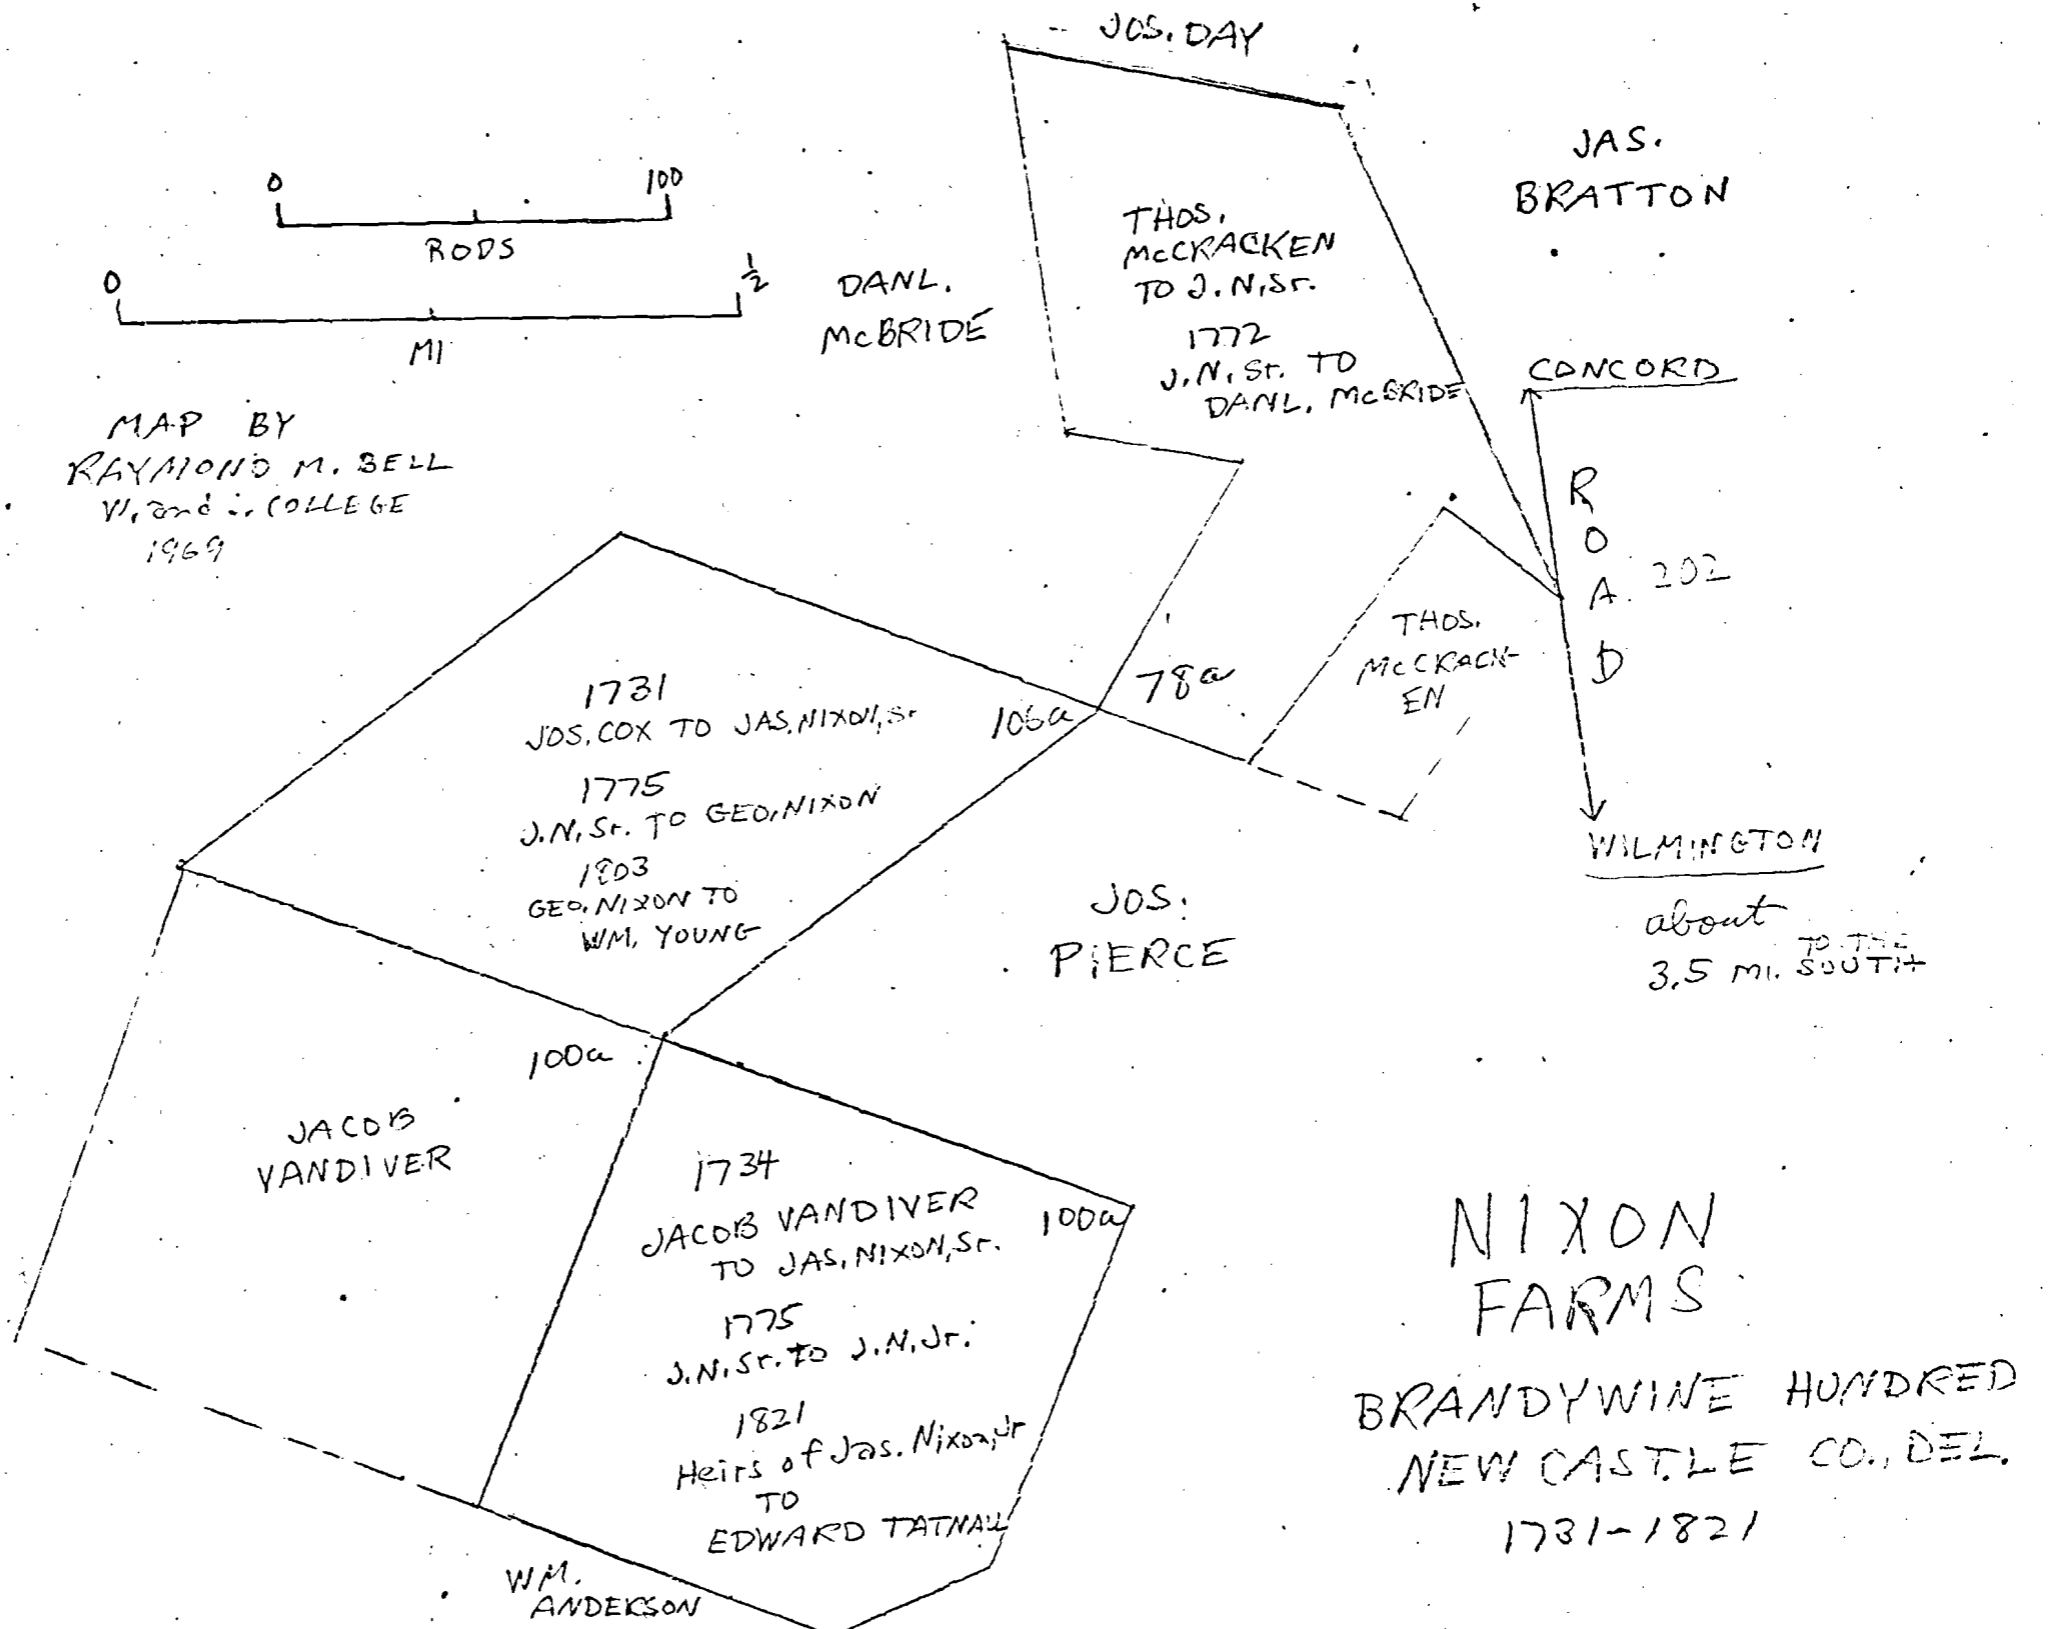 JOS. DAY
0 100
RODS
0 ½
MI
MAP BY
RAYMOND M. BELL
W. and J. COLLEGE
1969
DANL.
McBRIDE
THOS.
McCRACKEN
TO J.N.Sr.
1772
J.N.Sr. TO
DANL. McBRIDE
JAS.
BRATTON
CONCORD
ROAD
202
WILMINGTON
about
3.5 MI. TO THE
SOUTH
THOS.
McCRACK-
EN
78a
106a
1731
JOS. COX TO JAS. NIXON, Sr
1775
J.N.Sr. TO GEO. NIXON
1803
GEO. NIXON TO
WM. YOUNG
JOS.
PIERCE
100a
JACOB
VANDIVER
1734
JACOB VANDIVER
TO JAS. NIXON, Sr.
100a
1775
J.N.Sr. to J.N.Jr.
1821
Heirs of Jas. Nixon, Jr
TO
EDWARD TATNALL
WM.
ANDERSON
NIXON
FARMS
BRANDYWINE HUNDRED
NEW CASTLE CO., DEL.
1731-1821